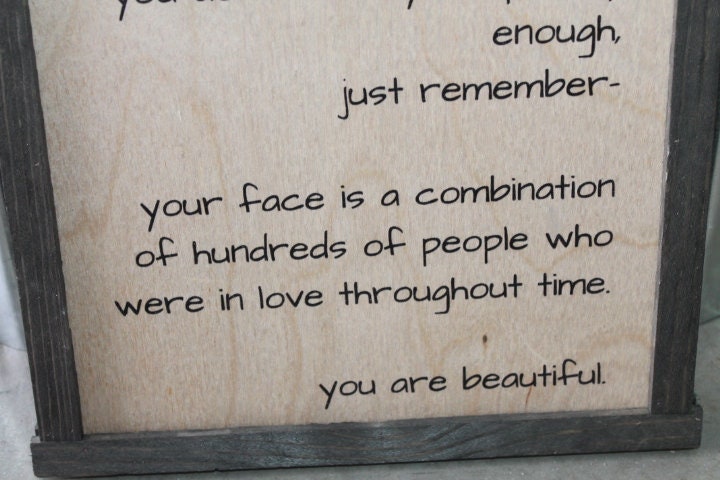 enough,
just remember-
your face is a combination
of hundreds of people who
were in love throughout time.
you are beautiful.